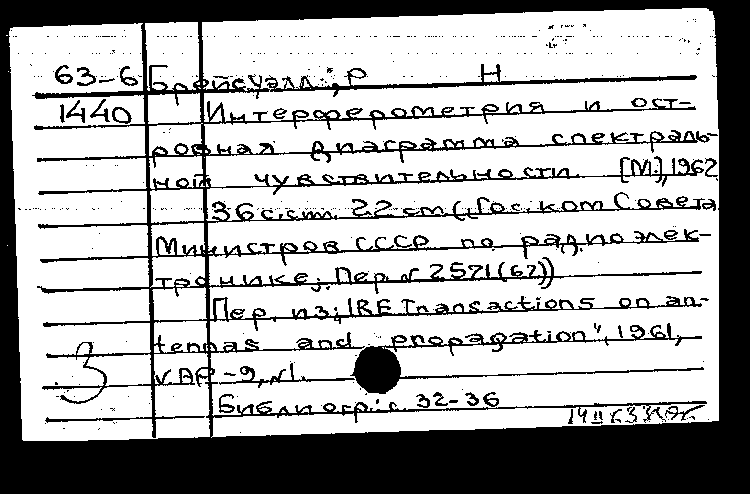 63-6 Брейсуэлл, Р Н
1440 Интерферометрия и ост-
ровная диаграмма спектраль-
ной чувствительности. [М.], 1962
36 с.ст. 22 см (Гос. ком Совета
Министров СССР по радиоэлек-
тронике; Пер № 2571(62))
Пер. из: „IRE Transactions on an-
tennas and propagation", 1961,
3 v. AP-9, №1.
Библиогр.: с. 32-36